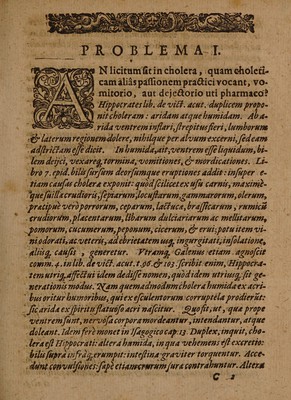 PROBLEMA I.
AN licitum sit in cholera, quam cholericam
cam aliàs passionem practici vocant, vo-
mitorio, aut dejectorio uti pharmaco?
Hippocrates lib. de vict. acut. duplicem propo-
nit choleram: aridam atque humidam. Ab a-
rida ventrem inflari, strepitus fieri, lumborum
& laterum regionem dolere, nihilque per alvum excerni, sed eam
adstrictam esse dicit. In humida, ait, ventrem esse liquidum, bi-
lem dejici, vexareq́, tormina, vomitiones, & mordicationes. Libro
7. epid. bilis sursum deorsumque eruptiones addit: insuper e-
tiam causas choleræ exponit: quod scilicet ex usu carnis, maximè-
que suillæ crudioris, sepiarum, locustarum, gammarorum, olerum,
præcipuè verò porrorum, ceparum, lactucæ, brassicarum, rumicū
crudiorum, placentarum, libarum dulciariarum ac mellitarum,
pomorum, cucumerum, peponum, cicerum, & ervi; potu item vi-
ni odorati, ac veteris, ad ebrietatem usq́, ingurgitati, insolatione,
aliisq́, causis, generetur. Utramq́, Galenus etiam agnoscit
comm. 4. in lib. de vict. acut. t. 98. & 103. scribit enim, Hippocra-
tem utriq́, affectui idem dedisse nomen, quòd idem utriusq́, sit ge-
nerationis modus. Nam quemadmodum cholera humida ex acri-
bus oritur humoribus, qui ex esculentorum corruptela prodierūt:
sic arida ex spiritu flatuoso acri nascitur. Quo fit, ut, quæ prope
ventrem sunt, nervosa corpora mordeantur, intendantur, atque
doleant. Idem ferè monet in Isagogico cap. 13. Duplex, inquit, cho-
lera est Hippocrati: altera humida, in qua vehemens est excretio:
bilis supra infràq́, erumpit: intestina graviter torquentur. Acce-
dunt convulsiones: sæpe etiam crurum sura contrahuntur. Altera
C 2